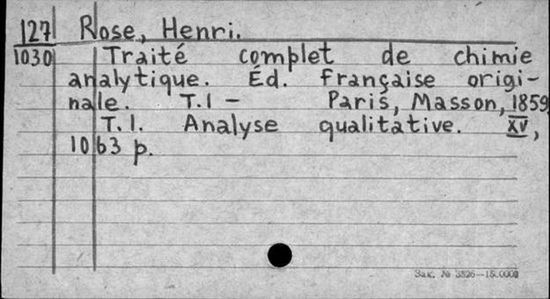 127 Rose, Henri.
1030 Traité complet de chimie
analytique. Éd. française origi-
nale. T.1 – Paris, Masson, 1859
T.1. Analyse qualitative. XV,
1063 p.
Зак. № 3826—15.000